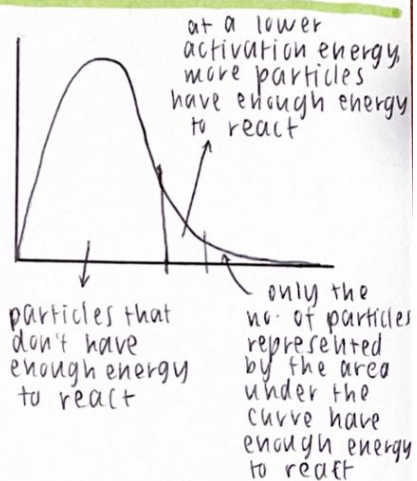 at a lower
activation energy,
more particles
have enough energy
to react
particles that
don't have
enough energy
to react
only the
no. of particles
represented
by the area
under the
curve have
enough energy
to react